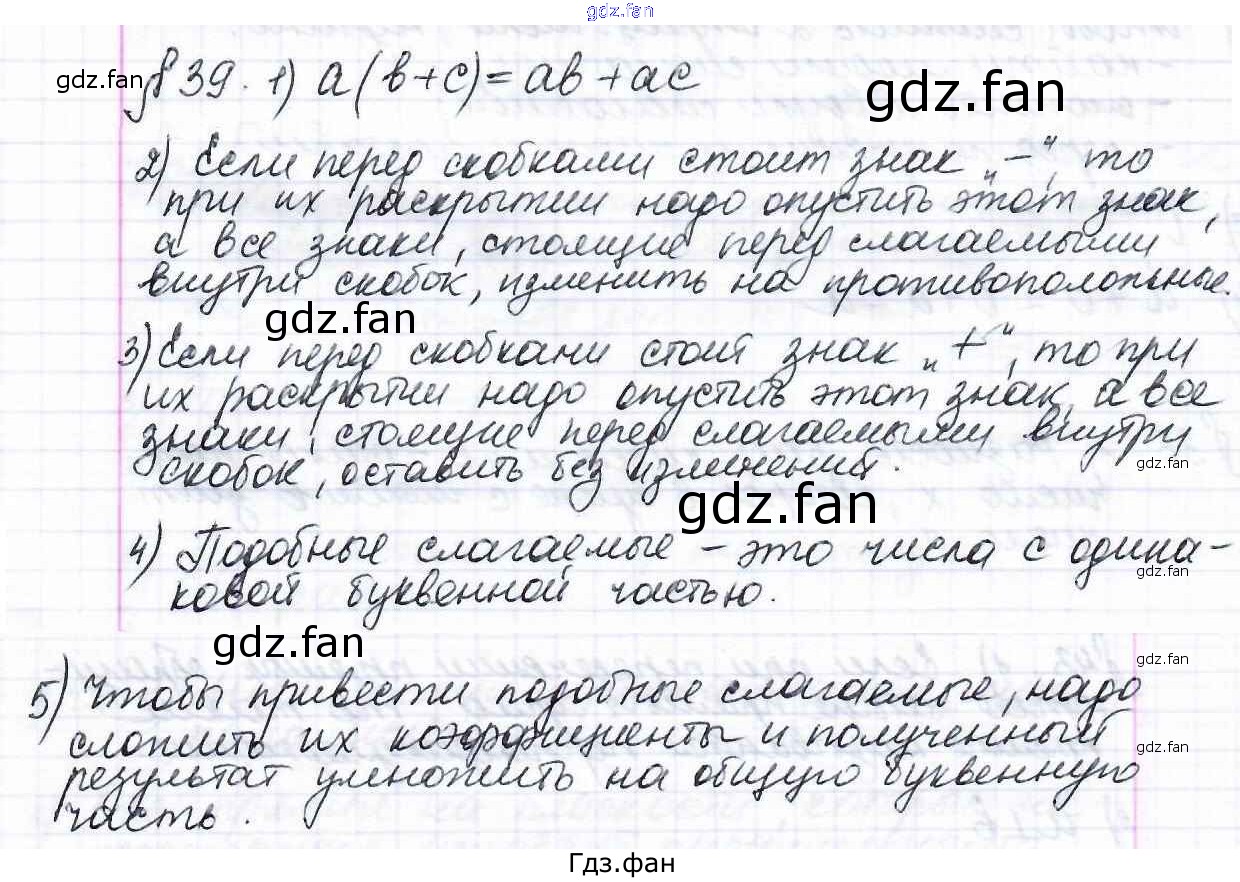 gdz.fan
§ 39. 1) a(b+c)=ab+ac
gdz.fan
gdz.fan
2) Если перед скобками стоит знак „–“, то
при их раскрытии надо опустить этот знак,
а все знаки, стоящие перед слагаемыми
внутри скобок, изменить на противоположные.
gdz.fan
3) Если перед скобками стоит знак „+“, то при
их раскрытии надо опустить этот знак, а все
знаки, стоящие перед слагаемыми внутри
скобок, оставить без изменений.
gdz.fan
gdz.fan
4) Подобные слагаемые – это числа с одина-
ковой буквенной частью.
gdz.fan
gdz.fan
gdz.fan
5) Чтобы привести подобные слагаемые, надо
сложить их коэффициенты и полученный
результат умножить на общую буквенную
часть.
gdz.fan
Гдз.фан